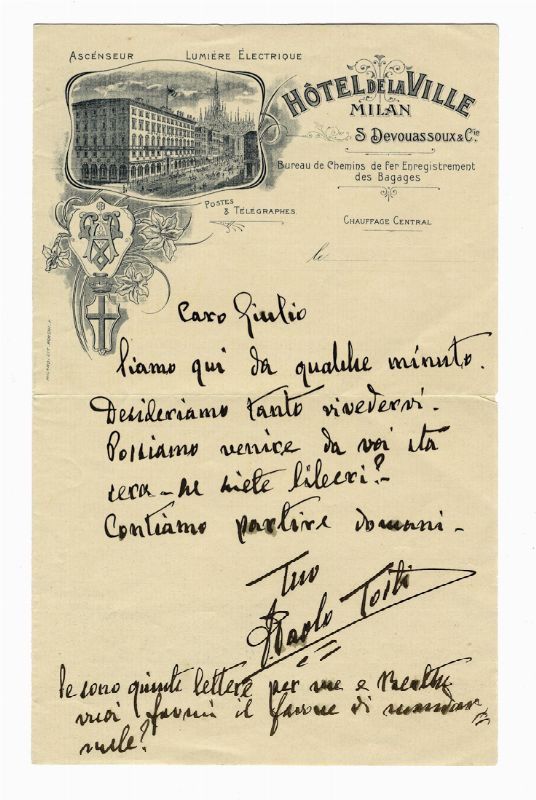 ASCENSEUR LUMIÈRE ÉLECTRIQUE
HÔTEL DE LA VILLE
MILAN
S. DEVOUASSOUX & Cie
Bureau de Chemins de fer Enregistrement
des Bagages
POSTES
& TÉLÉGRAPHES
CHAUFFAGE CENTRAL
le
Caro Giulio
Siamo qui da qualche minuto.
Desideriamo tanto rivedervi.
Possiamo venire da voi sta
sera - se siete liberi? -
Contiamo partire domani -
Tuo
F. Paolo Tosti
Se sono giunte lettere per me e Berthe
vuoi farmi il favore di mandar
mele?